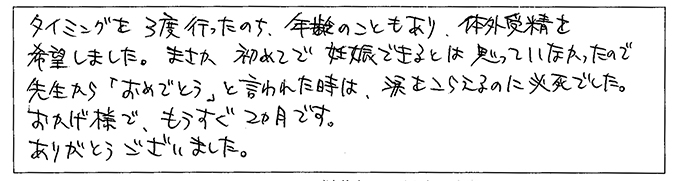 タイミングを3度行ったのち、年齢のこともあり、体外受精を
希望しました。まさか初めてで妊娠できるとは思っていなかったので
先生から「おめでとう」と言われた時は、涙をこらえるのに必死でした。
おかげ様で、もうすぐ2ヵ月です。
ありがとうございました。